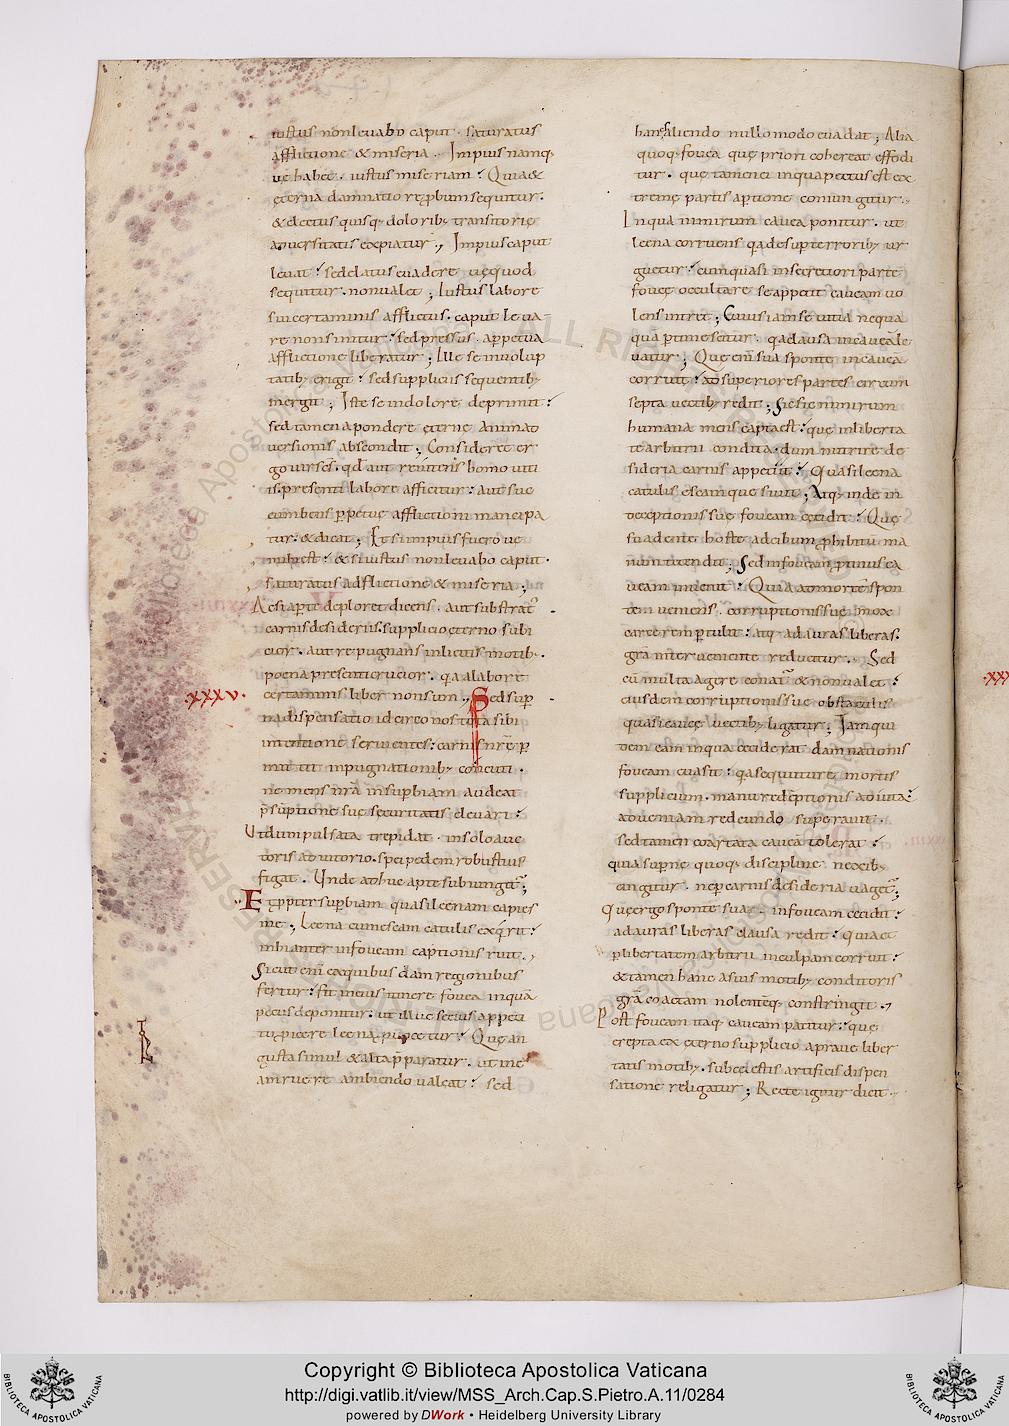 iustus non levabo caput . saturatus
afflictione & miseria . Impius namq;
vę habet . iustus miseriam ; Quia &
ęterna damnatio reprobum sequitur .
& electus quisq; doloribꝫ transitorię
adversitatis expiatur . Impius caput
levat ; sed elatus evadere vę quod
sequitur . non valet ; Iustus labore
sui certaminis afflictus . caput leva-
re non sinitur ; sed pressus . a perpetua
afflictione liberatur ; Ille se in volup
tatibꝫ erigit ; sed suppliciis sequentibꝫ
mergit ; Iste se in dolore deprimit ;
sed tamen a pondere ęternę animad
versionis abscondit ; Consideret er
go vir sēs . qđ aut renitens homo viti
is . presenti labore afficitur : aut suc
cumbens ꝑpetuę afflictioni mancipa
tur . & dicat ; Et si impius fuero vę
mihi est ; & si iustus non levabo caput .
saturatus adflictione & miseria ;
Ac si aperte deploret dicens . aut substrat᾽
carnis desideriis . supplicio ęterno subi
cior . aut repugnans inlicitis motibꝫ .
poena presenti crucior . q̄a a labore
certaminis liber non sum . Sed sup
na dispensatio idcirco nos tota sibi
intentione servientes : carnis nr̄ę ꝑ
mittit inpugnationibꝫ concuti .
ne mens nr̄a in supbiam audeat
p̄sūptione suę securitatis elevari ;
Ut dum pulsata trepidat . in solo auc
toris adiutorio . spei pedem robustius
figat . Unde adhuc apte subiungit᾽ ;
Et ꝓpter supbiam quasi leenam capies
me ; Leena cum escam catulis exq̄rit ;
inhianter in foveam captionis ruit .
Sicut enī ex quibusdam regionibus
fertur ; fit in eius itinere fovea in quā
pecus deponitur : ut illuc se eius appeti
tu p̄icere leena p̱vocetur ; Quę an
gusta simul & alta p̄paratur . ut in e
am ruere ambiendo valeat ; sed
hanc saliendo nullo modo evadat ; Alia
quoq; fovea quę priori cohereat effodi
tur . quę tamen ei in qua pecus est ex
tremę partis aptione coniungitur .
In qua nimirum cavea ponitur . ut
leena corruens q̄a desuper terroribꝫ ur
guetur ; cum quasi in secretiori parte
foveę occultare se appetit caveam vo
lens intret ; Cuius iam sevitia nequa
quā pertimescetur . q̄a clausa in cavea le
vatur ; Quę enī sua sponte in cavea
corruit ; ad superiores partes circum
septa vectibꝫ redit ; Sic sic nimirum
humana mens capta est ; quę in liberta
te arbitrii condita . dum nutrire de
sideria carnis appetiit ; Quasi leena
catulis escam quęsivit ; Atq; inde in
deceptionis suę foveam cecidit ; Quę
suadente hoste ad cibum ꝓhibitū ma
num tetendit ; Sed in fovea ꝓtinus ca
veam invenit ; Quia ad mortē spon
te veniens . corruptionis suę mox
carcerem pertulit : atq; ad auras liberas .
grā interveniente reducitur . Sed
cū multa agere conat᾽ & non valet ;
eiusdem corruptionis suę obstaculis
quasi caveę vectibꝫ ligatur ; Iam qui
dem eam in qua ceciderat damnationis
foveam evasit ; q̄a sequiturę mortis
supplicium . manu redēptionis adiuta
ad veniam redeundo superavit .
sed tamen coartata caveā tolerat ;
quia supernę quoq; disciplinę nexibꝫ
cingitur . ne per carnis desideria vaget᾽ ;
Quę ergo sponte sua . in foveam cecidit ;
ad auras liberas clausa redit ; quia et
ꝑ libertatem arbitrii in culpam corruit ;
& tamen hanc a suis motibꝫ conditoris
grā coactam nolentēq; constringit .
Post foveam itaq; caveam patitur ; quę
erepta ex ęterno supplicio a pravę liber
tatis motibꝫ . sub cęlestis artificis dispen
satione religatur ; Recte igitur dicit .
.xxxv.
.xxx
Copyright © Biblioteca Apostolica Vaticana
http://digi.vatlib.it/view/MSS_Arch.Cap.S.Pietro.A.11/0284
powered by DWork • Heidelberg University Library
BIBLIOTECA APOSTOLICA VATICANA
BIBLIOTECA APOSTOLICA VATICANA